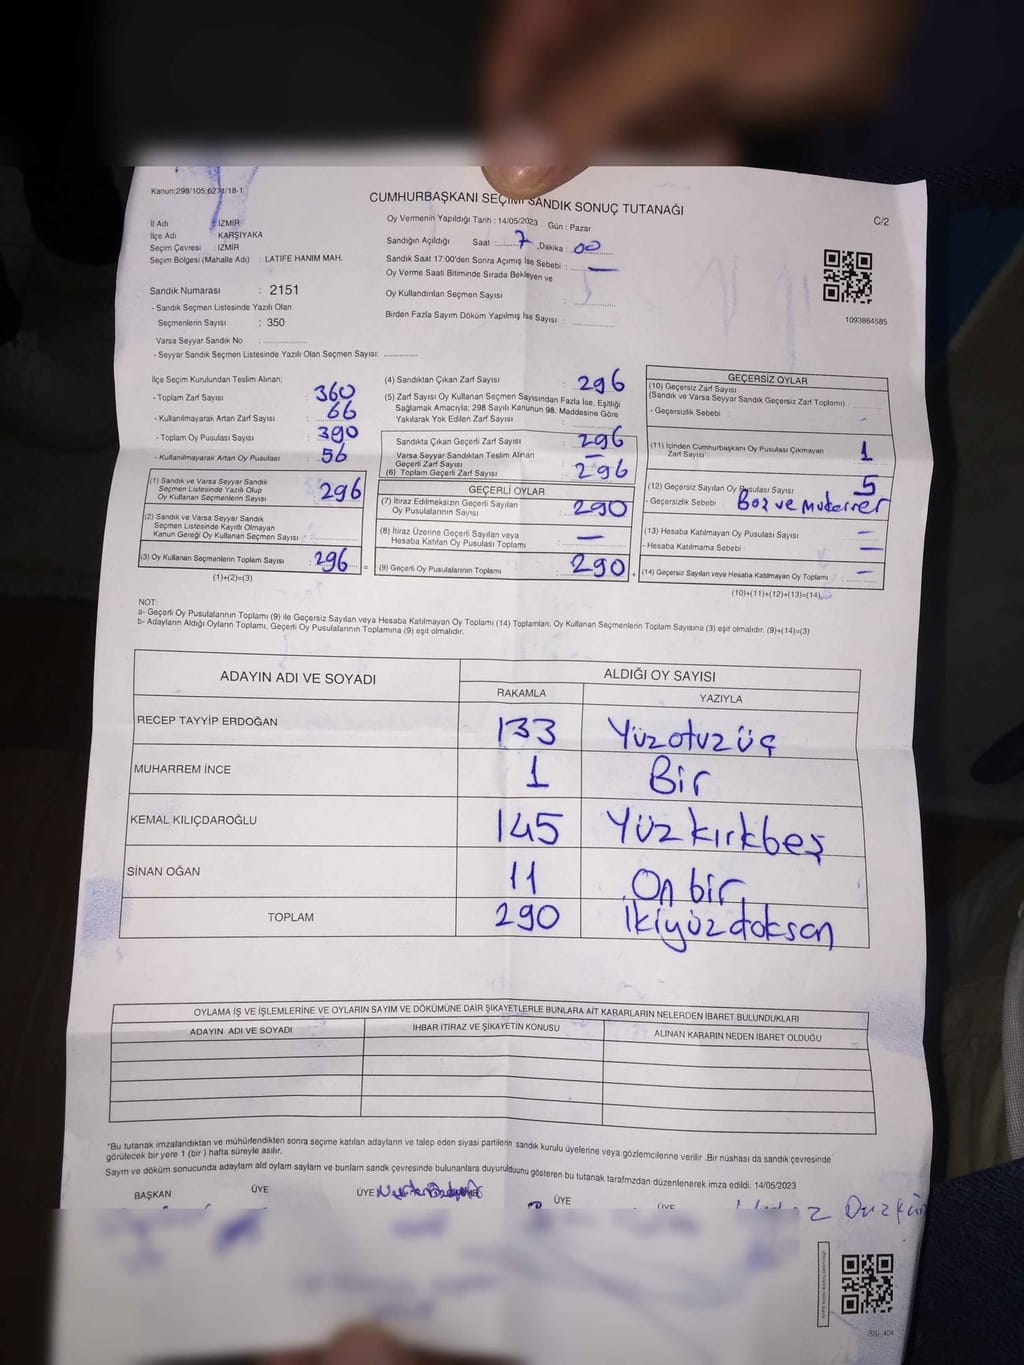 Kanun:298/105;6271/18-1
CUMHURBAŞKANI SEÇİMİ SANDIK SONUÇ TUTANAĞI
C/2
İl Adı : İZMİR
İlçe Adı : KARŞIYAKA
Seçim Çevresi : İZMİR
Seçim Bölgesi (Mahalle Adı) : LATİFE HANIM MAH.
Sandık Numarası : 2151
- Sandık Seçmen Listesinde Yazılı Olan
Seçmenlerin Sayısı : 350
Varsa Seyyar Sandık No :
- Seyyar Sandık Seçmen Listesinde Yazılı Olan Seçmen Sayısı:
Oy Vermenin Yapıldığı Tarih : 14/05/2023 Gün : Pazar
Sandığın Açıldığı Saat : 7 Dakika : 00
Sandık Saat 17:00'den Sonra Açımış İse Sebebi : —
Oy Verme Saati Bitiminde Sırada Bekleyen ve
Oy Kullandırılan Seçmen Sayısı :
Birden Fazla Sayım Döküm Yapılmış İse Sayısı :
1093864585
İlçe Seçim Kurulundan Teslim Alınan;
- Toplam Zarf Sayısı : 360
- Kullanılmayarak Artan Zarf Sayısı : 66
- Toplam Oy Pusulası Sayısı : 390
- Kullanılmayarak Artan Oy Pusulası : 56
(1) Sandık ve Varsa Seyyar Sandık
Seçmen Listesinde Yazılı Olup
Oy Kullanan Seçmenlerin Sayısı : 296
(2) Sandık ve Varsa Seyyar Sandık
Seçmen Listesinde Kayıtlı Olmayan
Kanun Gereği Oy Kullanan Seçmen Sayısı :
(3) Oy Kullanan Seçmenlerin Toplam Sayısı : 296
(1)+(2)=(3)
(4) Sandıktan Çıkan Zarf Sayısı : 296
(5) Zarf Sayısı Oy Kullanan Seçmen Sayısından Fazla İse, Eşitliği
Sağlamak Amacıyla; 298 Sayılı Kanunun 98. Maddesine Göre
Yakılarak Yok Edilen Zarf Sayısı :
Sandıkta Çıkan Geçerli Zarf Sayısı : 296
Varsa Seyyar Sandıktan Teslim Alınan
Geçerli Zarf Sayısı : —
(6) Toplam Geçerli Zarf Sayısı : 296
GEÇERLİ OYLAR
(7) İtiraz Edilmeksizin Geçerli Sayılan
Oy Pusulalarının Sayısı : 290
(8) İtiraz Üzerine Geçerli Sayılan veya
Hesaba Katılan Oy Pusulası Toplamı : —
(9) Geçerli Oy Pusulalarının Toplamı : 290
GEÇERSİZ OYLAR
(10) Geçersiz Zarf Sayısı
(Sandık ve Varsa Seyyar Sandık Geçersiz Zarf Toplamı) :
- Geçersizlik Sebebi : -
(11) İçinden Cumhurbaşkanı Oy Pusulası Çıkmayan
Zarf Sayısı : 1
(12) Geçersiz Sayılan Oy Pusulası Sayısı : 5
- Geçersizlik Sebebi :
(13) Hesaba Katılmayan Oy Pusulası Sayısı : —
- Hesaba Katılmama Sebebi : —
(14) Geçersiz Sayılan veya Hesaba Katılmayan Oy Toplamı : —
(10)+(11)+(12)+(13)=(14)
NOT:
a- Geçerli Oy Pusulalarının Toplamı (9) ile Geçersiz Sayılan veya Hesaba Katılmayan Oy Toplamı (14) Toplamları, Oy Kullanan Seçmenlerin Toplam Sayısına (3) eşit olmalıdır. (9)+(14)=(3)
b- Adayların Aldığı Oyların Toplamı, Geçerli Oy Pusulalarının Toplamına (9) eşit olmalıdır.
ADAYIN ADI VE SOYADI ALDIĞI OY SAYISI
RAKAMLA YAZIYLA
RECEP TAYYİP ERDOĞAN 133 Yüzotuzüç
MUHARREM İNCE 1 Bir
KEMAL KILIÇDAROĞLU 145 Yüzkırkbeş
SİNAN OĞAN 11 On bir
TOPLAM 290 İkiyüzdoksan
OYLAMA İŞ VE İŞLEMLERİNE VE OYLARIN SAYIM VE DÖKÜMÜNE DAİR ŞİKAYETLERLE BUNLARA AİT KARARLARIN NELERDEN İBARET BULUNDUKLARI
ADAYIN ADI VE SOYADI İHBAR İTİRAZ VE ŞİKAYETİN KONUSU ALINAN KARARIN NEDEN İBARET OLDUĞU
*Bu tutanak imzalandıktan ve mühürlendikten sonra seçime katılan adayların ve talep eden siyasi partilerin sandık kurulu üyelerine veya gözlemcilerine verilir .Bir nüshası da sandık çevresinde
görülecek bir yere 1 (bir ) hafta süreyle asılır.
Sayım ve döküm sonucunda adayların ald oyların sayların ve bunların sandk çevresinde bulunanlara duyurulduunu gösteren bu tutanak tarafmzdan düzenlenerek imza edildi. 14/05/2023
BAŞKAN ÜYE ÜYE ÜYE ÜYE
SSI .404